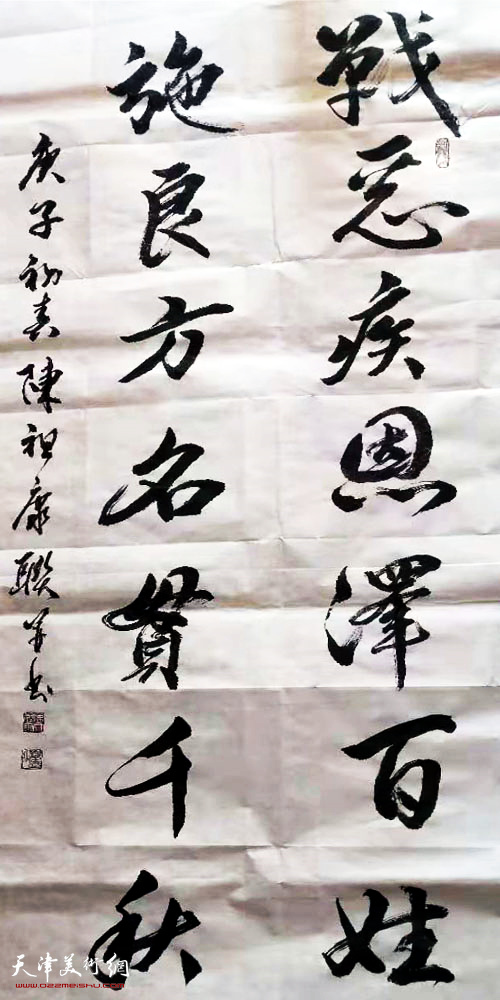 戰惡疾恩澤百姓
施良方名貫千秋
庚子初春陳祖康聯並書
天津美術網
www.022meishu.com